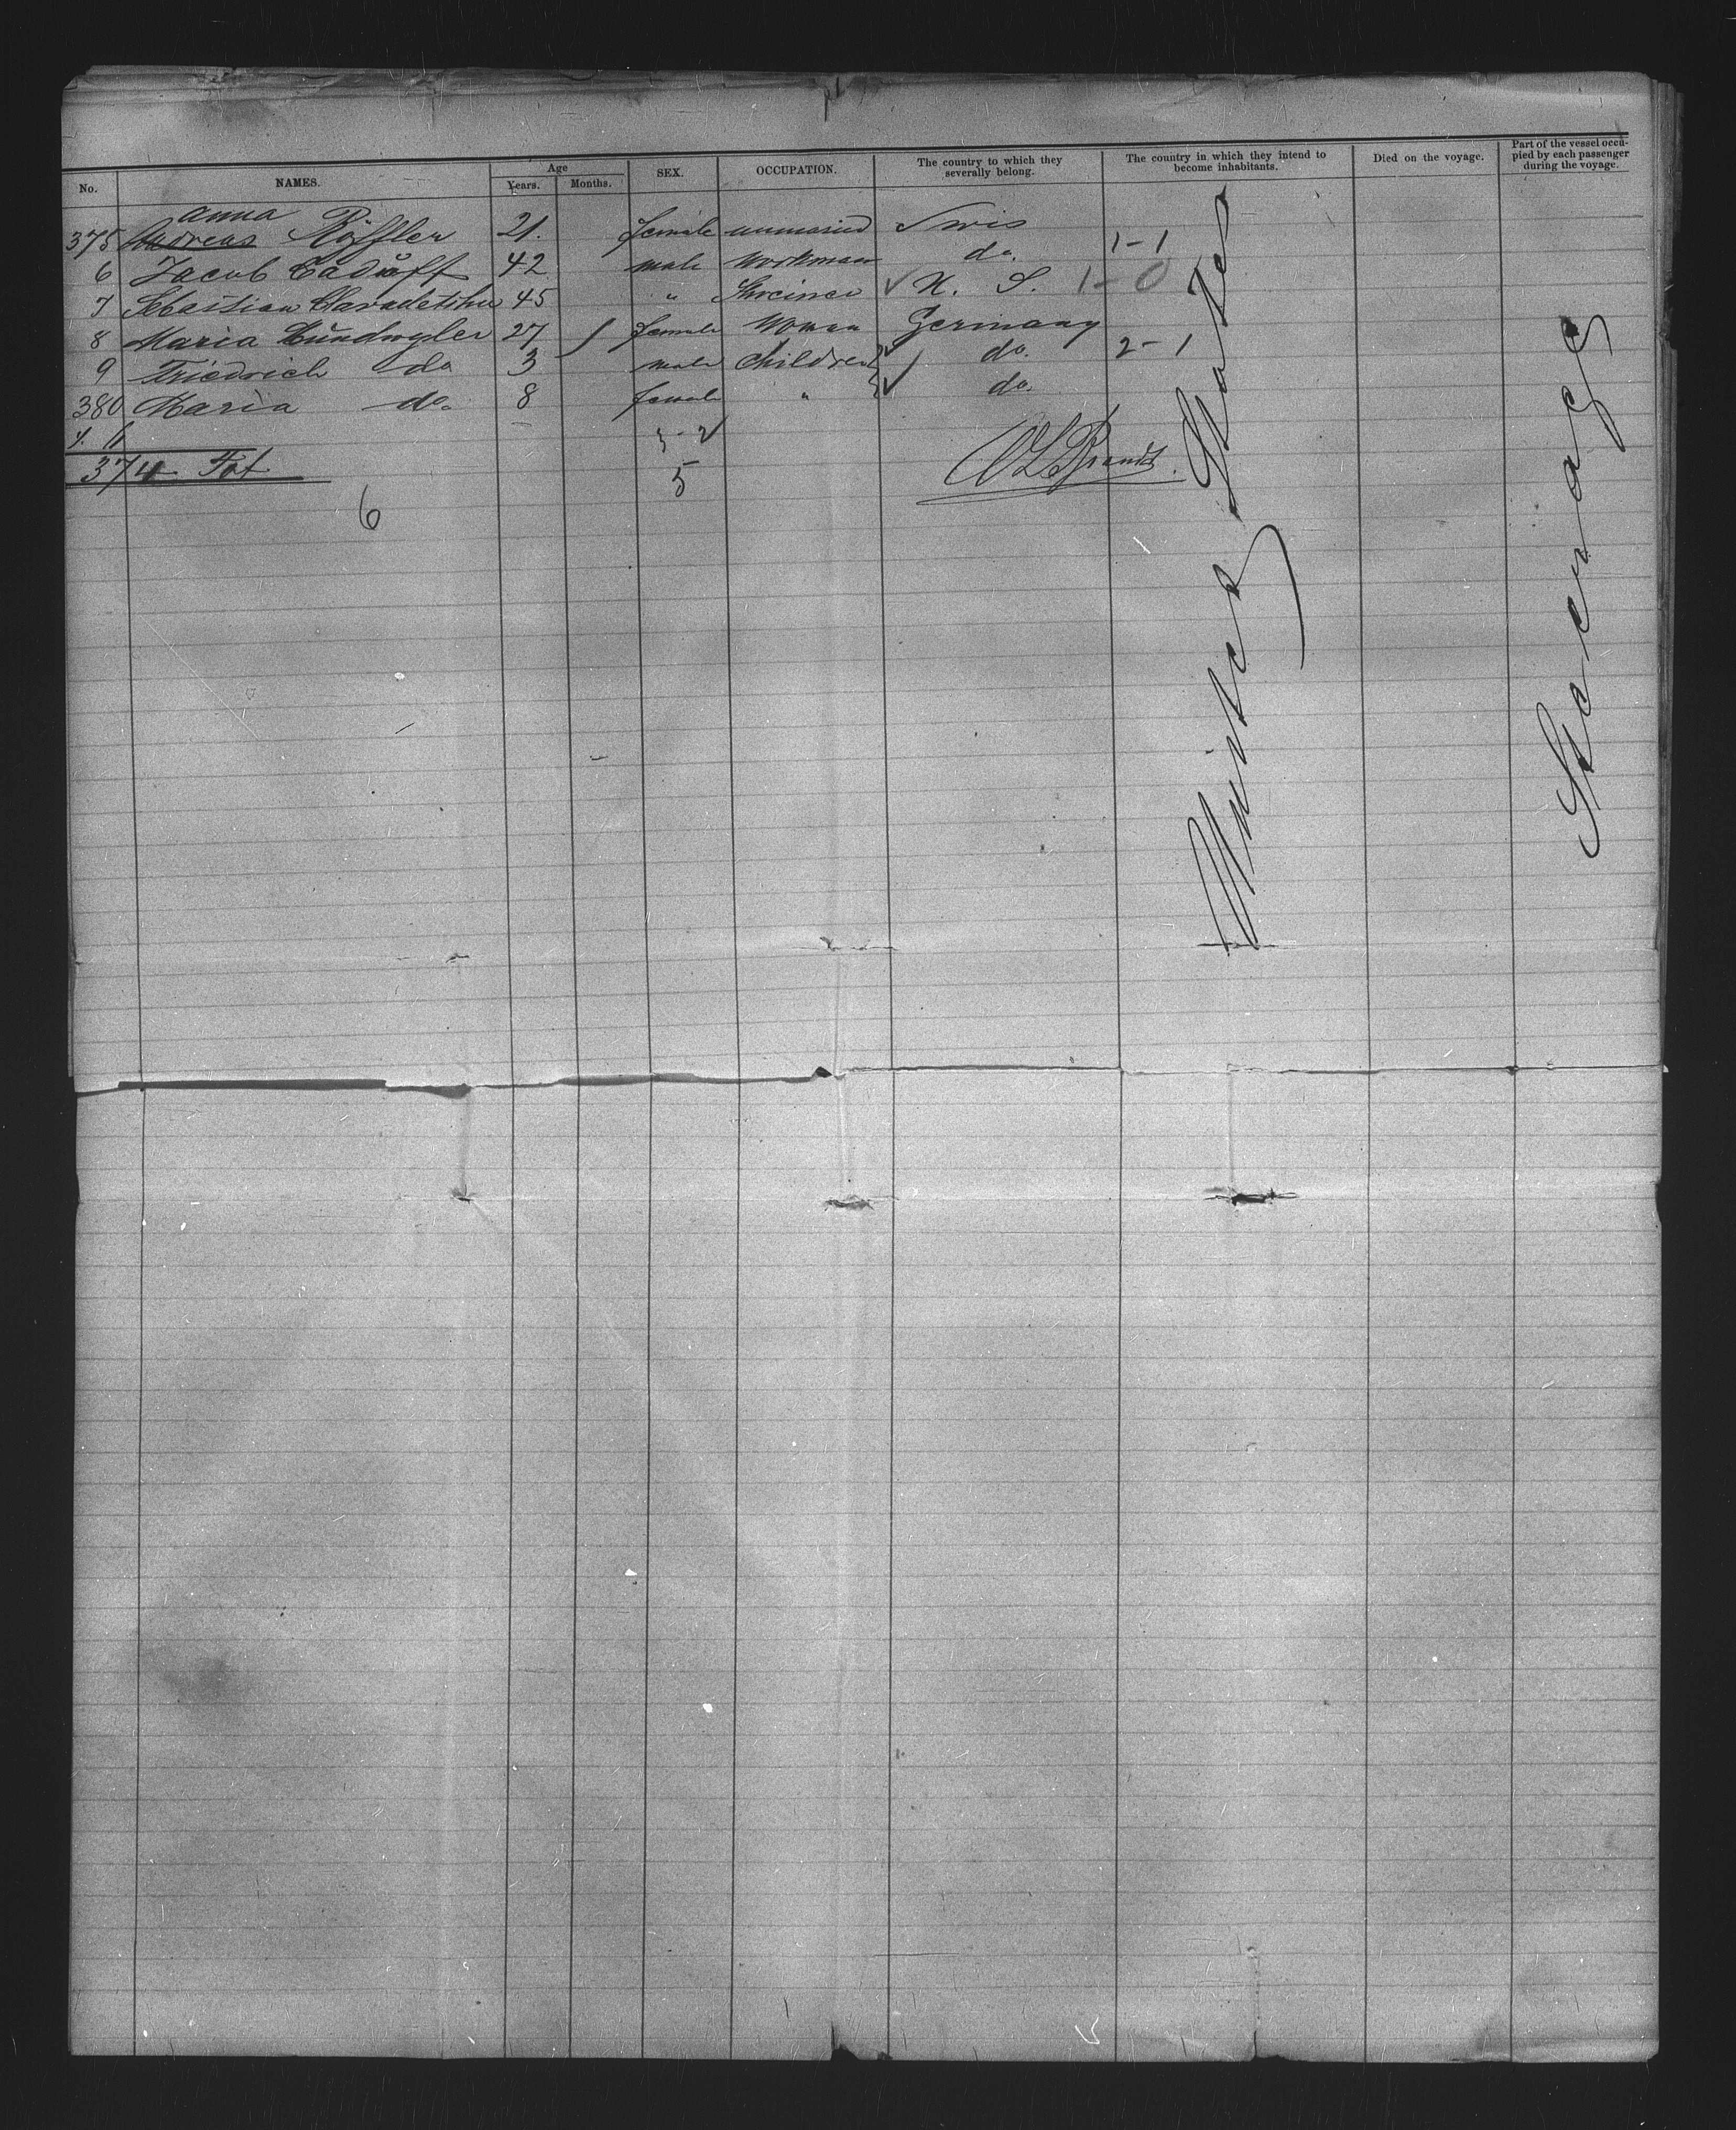 No. NAMES. Age Years. Months. SEX. OCCUPATION. The country to which they severally belong. The country in which they intend to become inhabitants. Died on the voyage. Part of the vessel occupied by each passenger during the voyage.
Anna
375 Andreas Röffler 21. female unmaried Swis
6 Jacob Caduff 42 male Workman do. 1-1
7 Sebastian 45 " U. S. 1-0
8 Maria Hundwyler 27 female Woman Germany
9 Friedrich do 3 male Children do. 2-1
380 Maria do. 8 female " do.
3-2
374 Tot 5 Brandt.
6
United States
Steerage